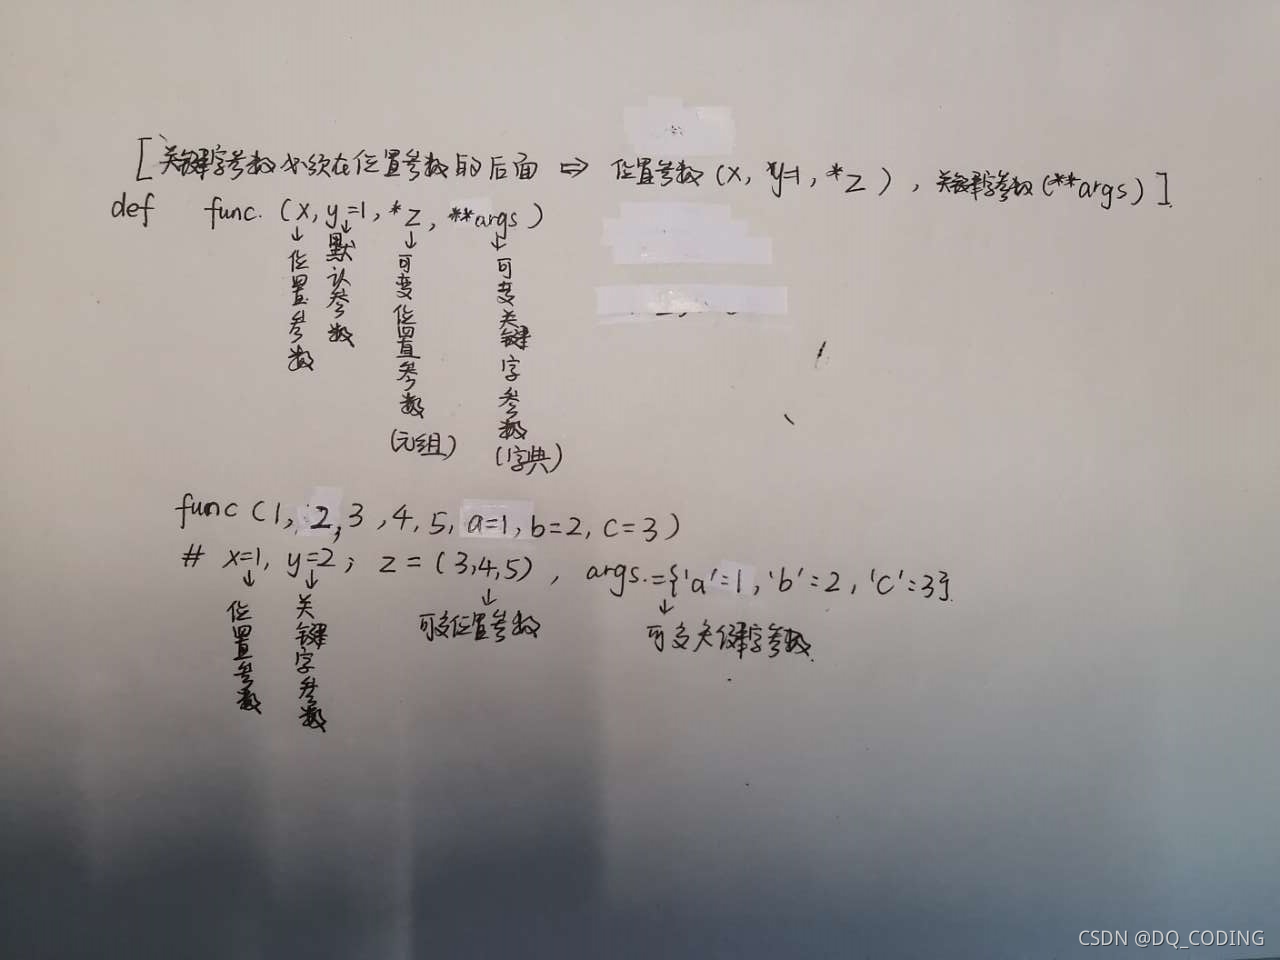 [关键字参数必须在位置参数的后面 ⇒ 位置参数(x, y=1, *z), 关键字参数(**args)]
def func.(x, y=1, *z, **args)
位置参数
默认参数
可变位置参数
(元组)
可变关键字参数
(字典)
func(1, 2, 3, 4, 5, a=1, b=2, c=3)
# x=1, y=2; z=(3,4,5), args.={'a'=1, 'b'=2, 'c'=3}
位置参数
关键字参数
可变位置参数
可变关键字参数.
CSDN @DQ_CODING